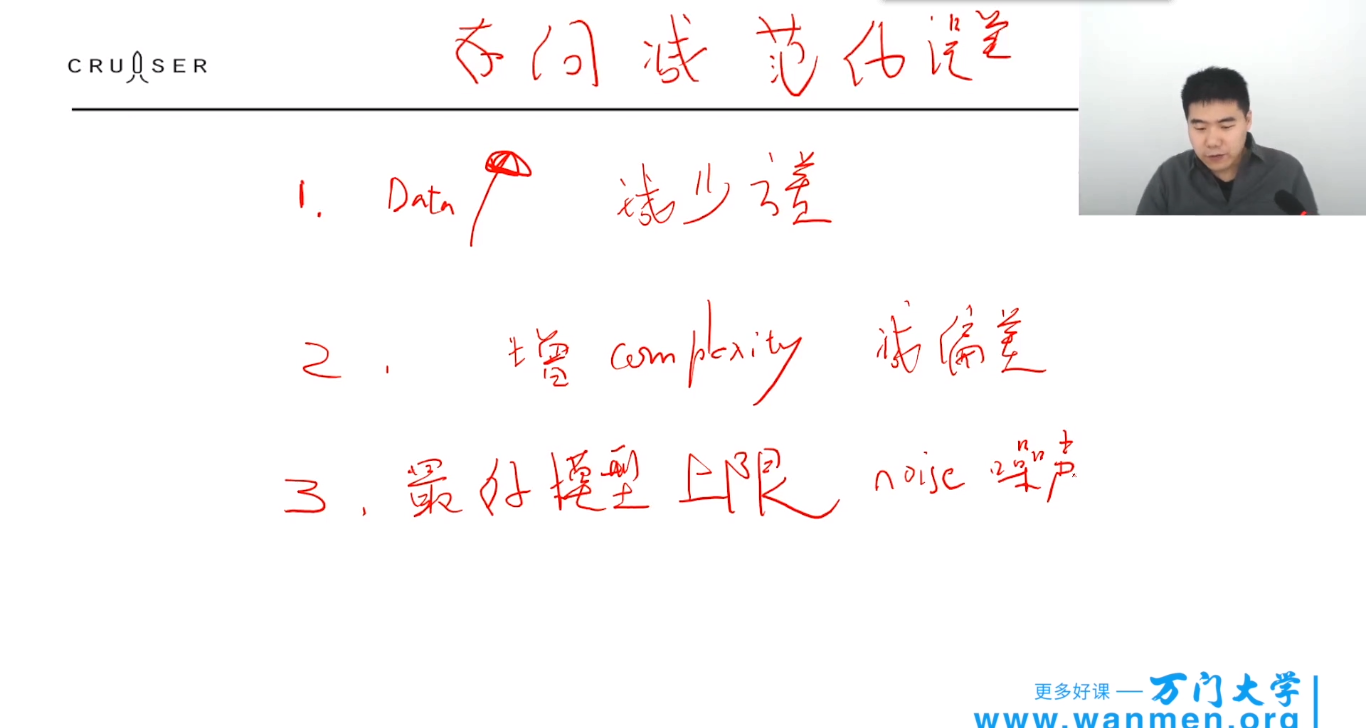 CRUISER
如何减范化误差
1. Data 减少方差
2. 增 complexity 减偏差
3. 最好模型上限 noise 噪声
更多好课 — 万门大学
www.wanmen.org